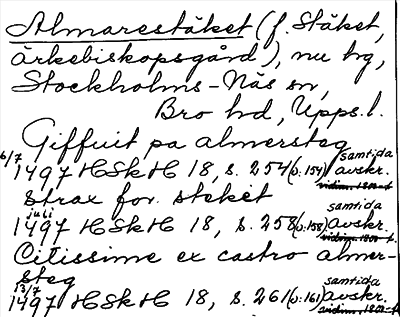 Almarestäket (f. Stäket,
ärkebiskopsgård), nu hg,
Stockholms-Näs sn,
Bro hd, Upps. l.
Giffuit pa almersteg
6/7 1497 HSkH 18, s. 254 (o: 154) samtida avskr.
Strax for steket
juli 1497 HSkH 18, s. 258 (o: 158) samtida avskr.
Citissime ex castro almer-
steg
13/7 1497 HSkH 18, s. 261 (o: 161) samtida avskr.